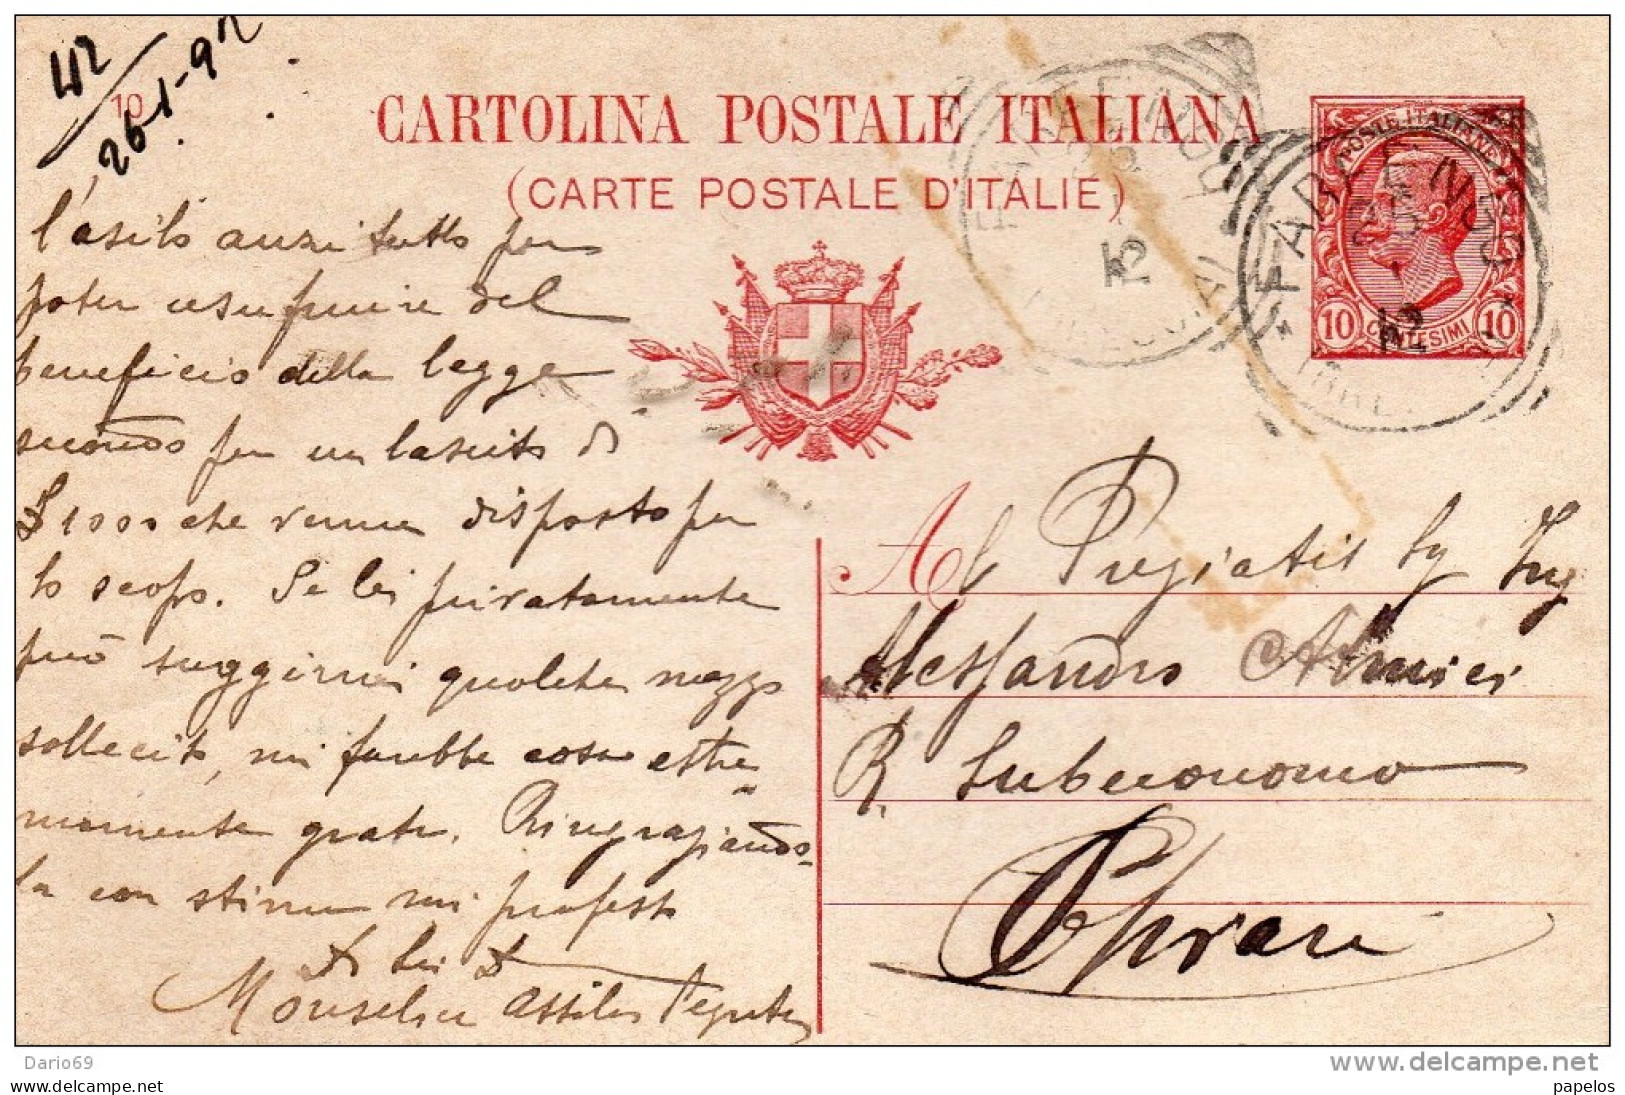 42
26-1-912
10
CARTOLINA POSTALE ITALIANA
(CARTE POSTALE D'ITALIE)
POSTE ITALIANE
10 CENTESIMI 10
FARFENGO
25
1
12
FARFENGO
25
1
12
l'asilo anzi tutto per
poter usufruire del
beneficio della legge
secondo per un lascito di
£ 1000 che venne disposto per
lo scopo. Se lei privatamente
può suggirmi qualche mezzo
sollecito, mi farebbe cosa estre
mamente grata. Ringraziando-
la con stima mi professo
di lei
Attilio
Al Pregiatis Sig Ing
Alessandro Amici
R. Subeconomo
Chiari
Dario69
delcampe.net
http://www.delcampe.net
papelos